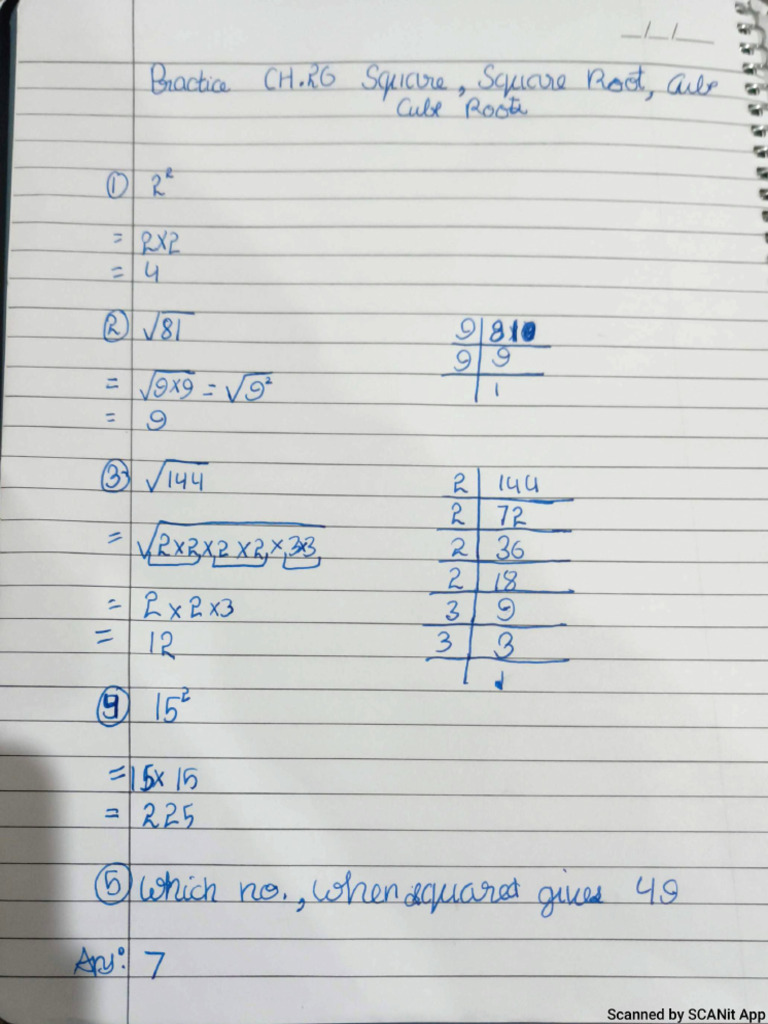 _/_/__
Practice CH.26 Square, Square Root, Cube
Cube Root
① 2²
= 2×2
= 4
② √81
9 | 81
= √9×9 = √9²
9 | 9
| 1
= 9
③ √144
2 | 144
2 | 72
= √2×2×2×2×3×3
2 | 36
2 | 18
= 2×2×3
3 | 9
= 12
3 | 3
| 1
④ 15²
= 15×15
= 225
⑤ Which no., when squared gives 49
Ans: 7
Scanned by SCANit App